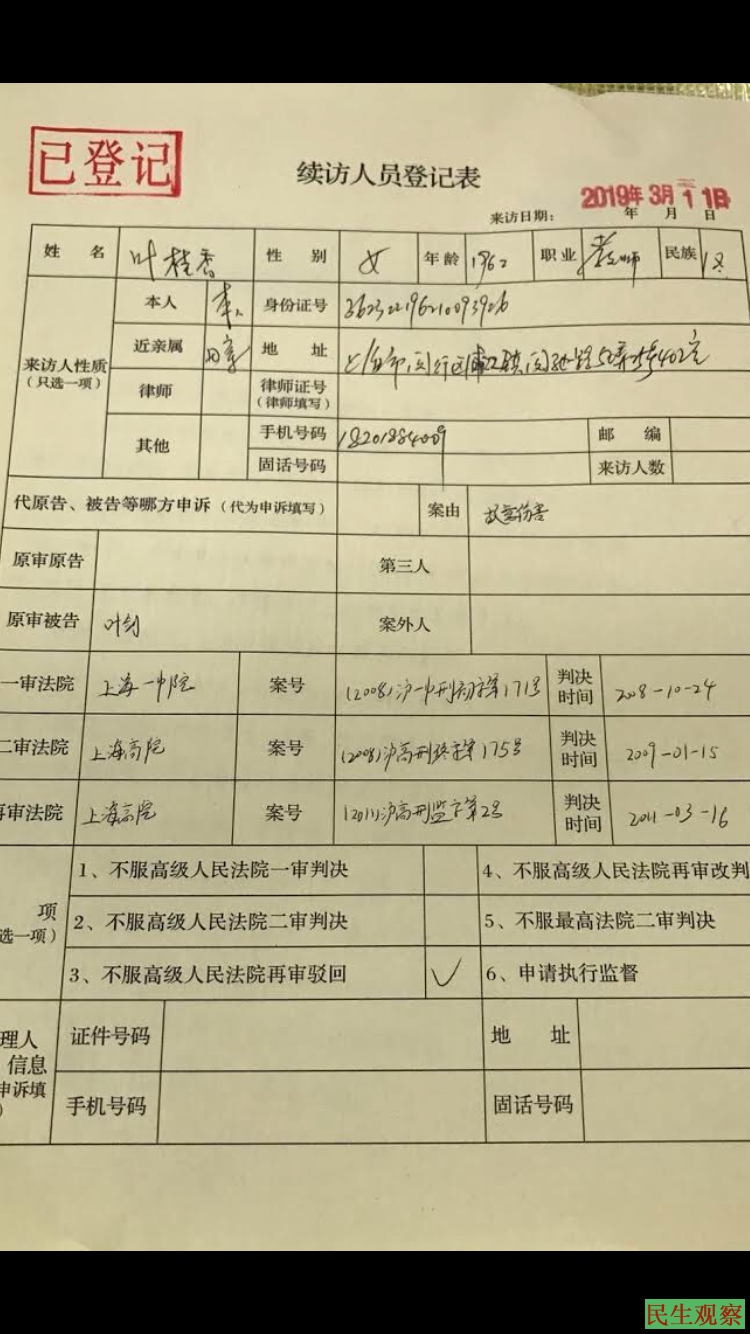 已登记
续访人员登记表
2019年3月11日
来访日期： 年 月 日
姓 名 叶桂香 性 别 女 年龄 1962 职业 教师 民族 汉
来访人性质
（只选一项）
本人 本人 身份证号
近亲属 地 址 上海市闵行区
律师 律师证号
（律师填写）
其他 手机号码 邮 编
固话号码 来访人数
代原告、被告等哪方申诉（代为申诉填写） 案由 故意伤害
原审原告 第三人
原审被告 叶剑 案外人
一审法院 上海一中院 案号 (2008)沪一中刑初字第171号 判决时间 2008-10-24
二审法院 上海高院 案号 (2008)沪高刑终字第175号 判决时间 2009-01-15
再审法院 上海高院 案号 (2011)沪高刑监字第2号 判决时间 2011-03-16
项
选一项）
1、不服高级人民法院一审判决 4、不服高级人民法院再审改判
2、不服高级人民法院二审判决 5、不服最高法院二审判决
3、不服高级人民法院再审驳回 ✓ 6、申请执行监督
理人
信息
申诉填
）
证件号码 地 址
手机号码 固话号码
民生观察